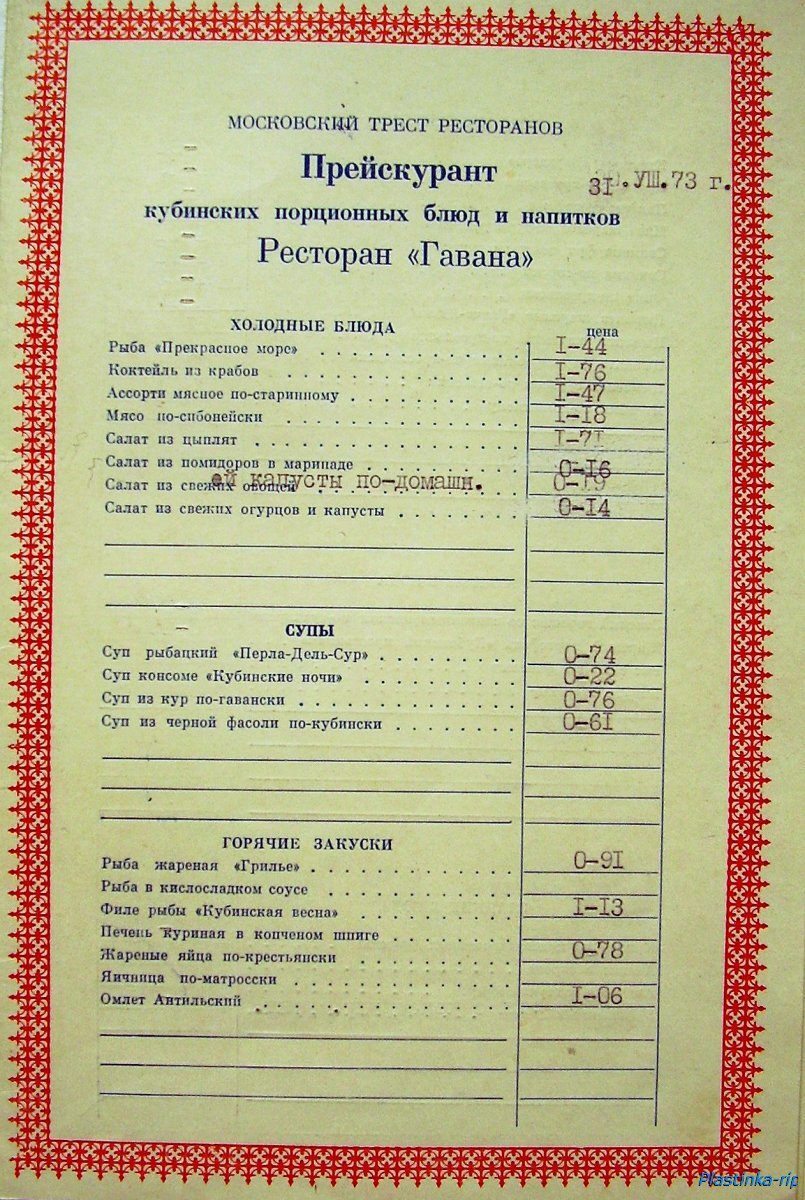 МОСКОВСКИЙ ТРЕСТ РЕСТОРАНОВ
Прейскурант
31.УШ.73 г.
кубинских порционных блюд и напитков
Ресторан «Гавана»
ХОЛОДНЫЕ БЛЮДА цена
Рыба «Прекрасное море» . . . . . . . . . . I-44
Коктейль из крабов . . . . . . . . . . . I-76
Ассорти мясное по-старинному . . . . . . . . I-47
Мясо по-сибонейски . . . . . . . . . . . I-I8
Салат из цыплят . . . . . . . . . . . . I-7I
Салат из помидоров в маринаде . . . . . . . 0-I6
ей капусты по-домашн.
Салат из свежих овощей . . . . . . . . . 0-I9
Салат из свежих огурцов и капусты . . . . . . 0-I4
СУПЫ
Суп рыбацкий «Перла-Дель-Сур» . . . . . . . 0-74
Суп консоме «Кубинские ночи» . . . . . . . . 0-22
Суп из кур по-гавански . . . . . . . . . . 0-76
Суп из черной фасоли по-кубински . . . . . . 0-6I
ГОРЯЧИЕ ЗАКУСКИ
Рыба жареная «Грилье» . . . . . . . . . . 0-9I
Рыба в кислосладком соусе . . . . . . . . .
Филе рыбы «Кубинская весна» . . . . . . . . I-I3
Печень куриная в копченом шпиге . . . . . .
Жареные яйца по-крестьянски . . . . . . . . 0-78
Яичница по-матросски . . . . . . . . . . .
Омлет Антильский . . . . . . . . . . . . I-06
Plastinka-rip